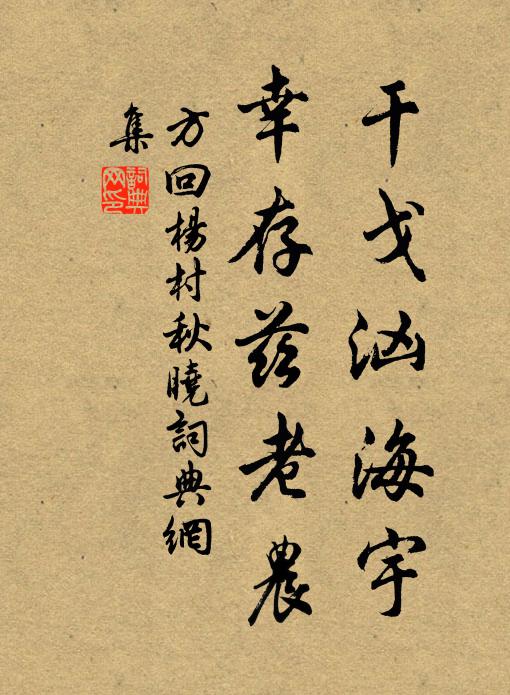 干戈汹海宇
幸存茲老農
方回楊村秋曉詞典網
集
詞典網印